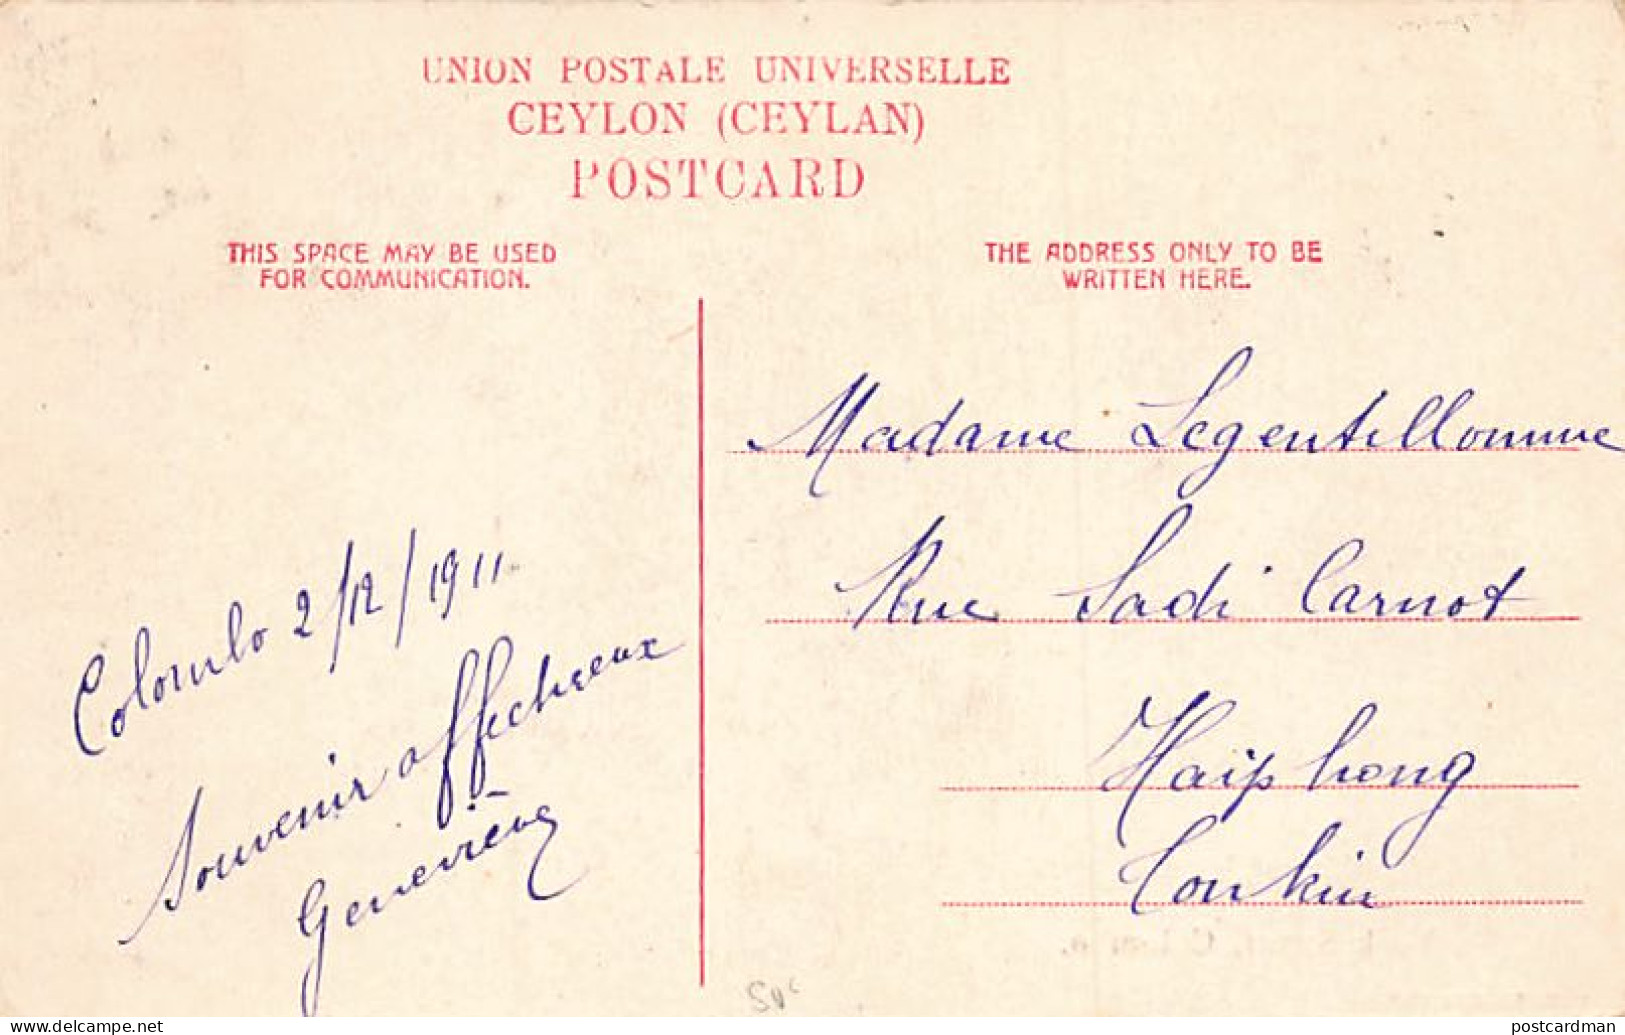 UNION POSTALE UNIVERSELLE
CEYLON (CEYLAN)
POSTCARD
THIS SPACE MAY BE USED
FOR COMMUNICATION.
THE ADDRESS ONLY TO BE
WRITTEN HERE.
Colombo 2/12/1911
Souvenir affectueux
Geneviève
Madame Legentilhomme
Rue Sadi Carnot
Haiphong
Tonkin
50c
www.delcampe.net
postcardman